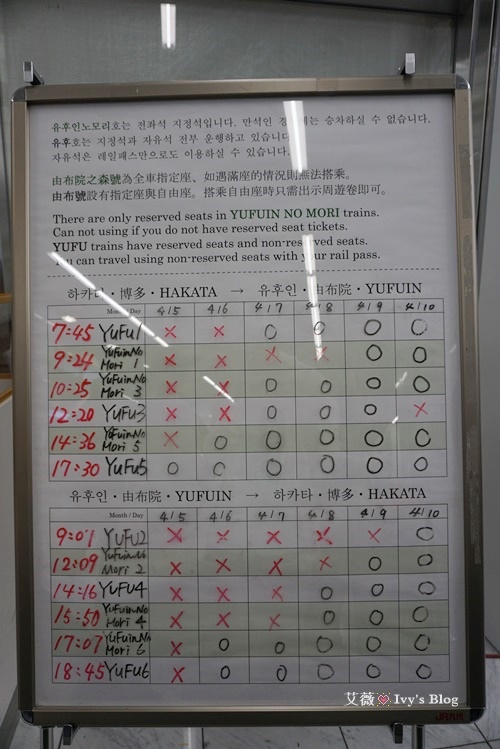 유후인노모리호는 전좌석 지정석입니다. 만석인 경 에는 승차하실 수 없습니다.
유후호는 지정석과 자유석 전부 운행하고 있습니다
자유석은 레일패스만으로도 이용하실 수 있습니다.
由布院之森號為全車指定座、如遇滿座的情況則無法搭乘。
由布號設有指定座與自由座。搭乘自由座時只需出示周遊卷即可。
There are only reserved seats in YUFUIN NO MORI trains.
Can not using if you do not have reserved seat tickets.
YUFU trains have reserved seats and non-reserved seats.
You can travel using non-reserved seats with your rail pass.
하카타・博多・HAKATA → 유후인・由布院・YUFUIN
Month / Day 4/5 4/6 4/7 4/8 4/9 4/10
7:45 YuFu1 × × ○ ○ ○ ○
9:24 YuFuin No Mori 1 × × × × ○ ○
10:25 YuFuin No Mori 3 × × ○ ○ ○ ○
12:20 YuFu3 × × ○ ○ ○ ×
14:36 YuFuin No Mori 5 × ○ ○ ○ ○ ○
17:30 YuFu5 ○ ○ ○ ○ ○ ○
유후인・由布院・YUFUIN → 하카타・博多・HAKATA
Month / Day 4/5 4/6 4/7 4/8 4/9 4/10
9:01 YuFu2 × × × × × ○
12:09 YuFuin No Mori 2 × × × × ○ ○
14:16 YuFu4 × × × ○ ○ ○
15:50 YuFuin No Mori 4 × × × ○ ○ ○
17:07 YuFuin No Mori 6 × ○ ○ ○ ○ ○
18:45 YuFu6 × ○ ○ ○ ○ ○
艾薇 Ivy's Blog